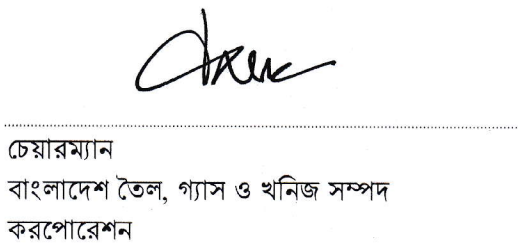 চেয়ারম্যান
বাংলাদেশ তৈল, গ্যাস ও খনিজ সম্পদ
করপোরেশন